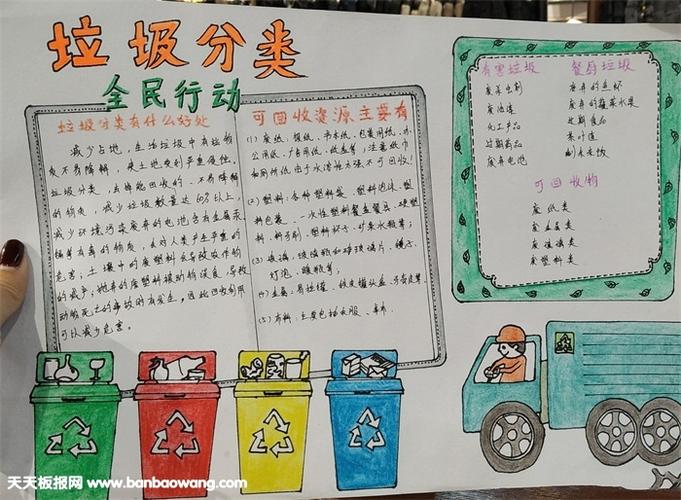 垃圾分类
全民行动
垃圾分类有什么好处
减少占地,生活垃圾中有些物
质不易降解,使土地受到严重侵蚀。
垃圾分类,去掉能回收的、不易降解
的物质,减少垃圾数量达60%以上。
减少环境污染废弃的电池含有金属汞、
镉等有毒的物质,会对人类产生严重的
危害;土壤中的废塑料会导致农作物
的减产;抛弃的废塑料被动物误食,导致
动物死亡的事故时有发生。因此回收利用
可以减少危害。
可回收资源主要有
(1)废纸:报纸、书本纸、包装用纸、办
公用纸、广告用纸、纸盒等;注意纸巾
和厕所纸由于水溶性太强不可回收!
(2)塑料:各种塑料袋、塑料泡沫、塑
料包装、一次性塑料餐盒餐具、硬塑
料、塑料牙刷、塑料杯子、矿泉水瓶等;
(3)玻璃:玻璃瓶和碎玻璃片、镜子、
灯泡、暖瓶等;
(4)金属:易拉罐、铁皮罐头盒、牙膏皮等;
(5)布料:主要包括衣服、
有害垃圾
废杀虫剂
废油漆
化工产品
过期药品
废弃电池
餐厨垃圾
废弃的鱼
废弃的蔬菜水果
过期食品
茶叶渣
剩菜剩饭
可回收物
废纸类
废金属类
废玻璃类
废塑料类
天天板报网 www.banbaowang.com